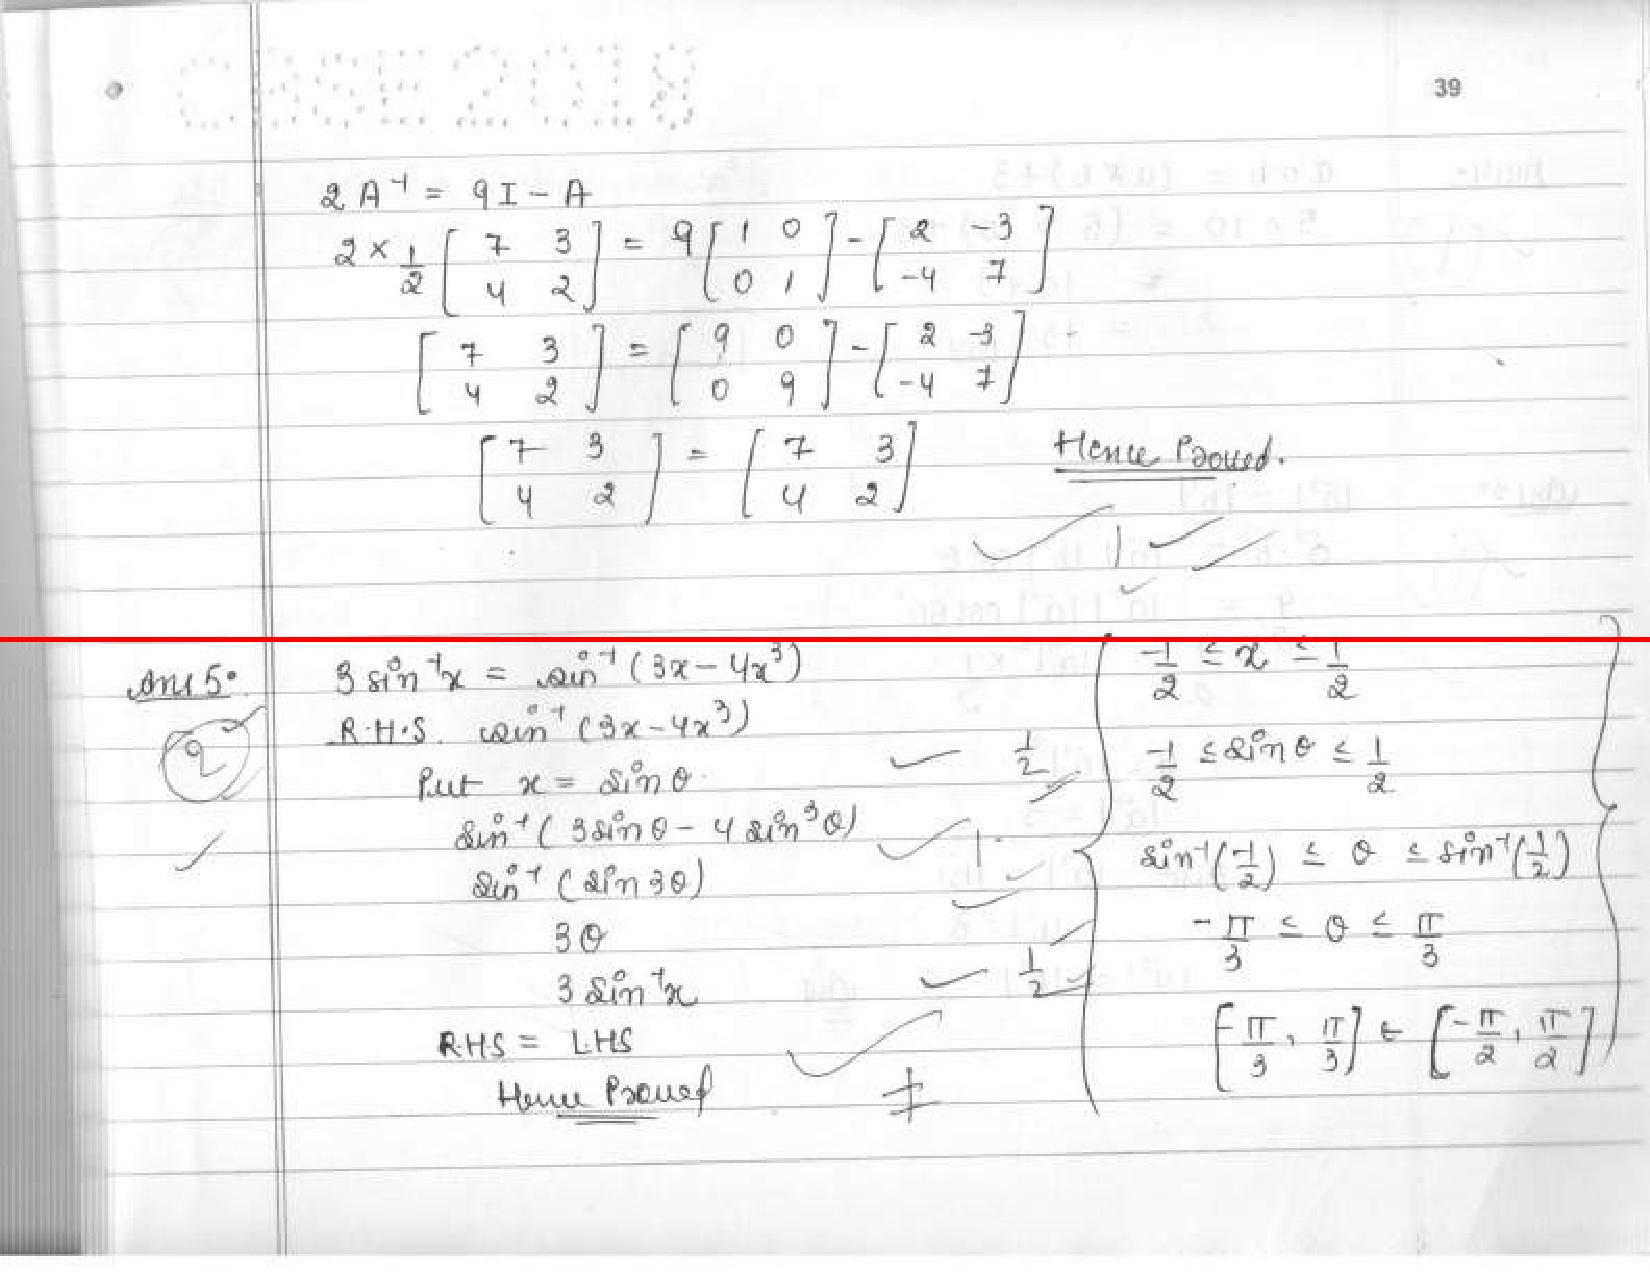 CBSE 2018
39
2A⁻¹ = 9I - A
2 × 1/2 [7 3; 4 2] = 9 [1 0; 0 1] - [2 -3; -4 7]
[7 3; 4 2] = [9 0; 0 9] - [2 -3; -4 7]
[7 3; 4 2] = [7 3; 4 2] Hence Proved.
1
Ans 5.
2
3 sin⁻¹x = sin⁻¹(3x - 4x³)
R.H.S. sin⁻¹(3x - 4x³)
Put x = sin θ. 1/2
sin⁻¹(3 sin θ - 4 sin³θ) 1
sin⁻¹(sin 3θ)
3θ
3 sin⁻¹x 1/2
RHS = LHS
Hence Proved
-1/2 ≤ x ≤ 1/2
-1/2 ≤ sin θ ≤ 1/2
sin⁻¹(-1/2) ≤ θ ≤ sin⁻¹(1/2)
-π/3 ≤ θ ≤ π/3
[-π/3, π/3] ∈ [-π/2, π/2]